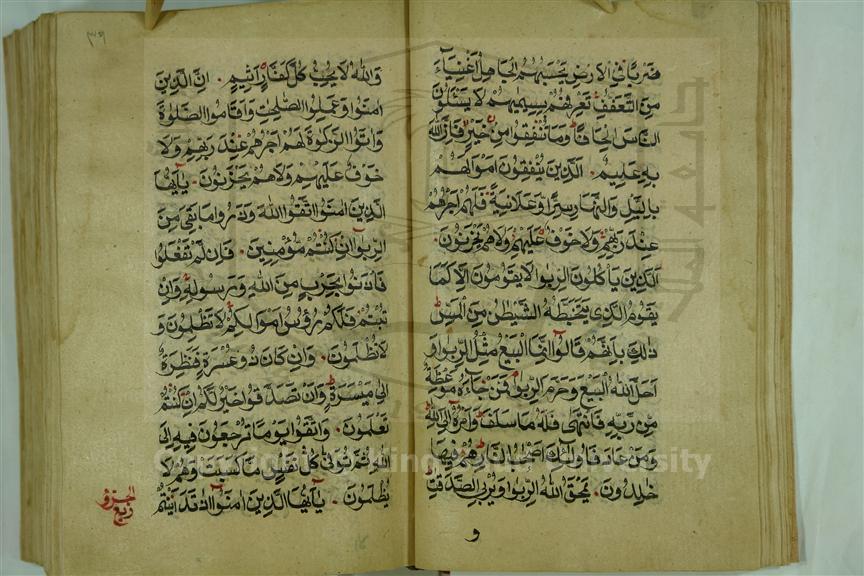 ضَرْبًا فِي الْاَرْضِ يَحْسَبُهُمُ الْجَاهِلُ اَغْنِيَآءَ
مِنَ التَّعَفُّفِ تَعْرِفُهُمْ بِسِيمٰيهُمْ لَا يَسْئَلُونَ
النَّاسَ اِلْحَافًا وَمَا تُنْفِقُوا مِنْ خَيْرٍ فَاِنَّ اللّٰهَ
بِهِ عَلِيمٌ اَلَّذِينَ يُنْفِقُونَ اَمْوَالَهُمْ
بِالَّيْلِ وَالنَّهَارِ سِرًّا وَعَلَانِيَةً فَلَهُمْ اَجْرُهُمْ
عِنْدَ رَبِّهِمْ وَلَا خَوْفٌ عَلَيْهِمْ وَلَا هُمْ يَحْزَنُونَ
اَلَّذِينَ يَأْكُلُونَ الرِّبٰوا لَا يَقُومُونَ اِلَّا كَمَا
يَقُومُ الَّذِي يَتَخَبَّطُهُ الشَّيْطٰنُ مِنَ الْمَسِّ
ذٰلِكَ بِاَنَّهُمْ قَالُوا اِنَّمَا الْبَيْعُ مِثْلُ الرِّبٰوا وَ
اَحَلَّ اللّٰهُ الْبَيْعَ وَحَرَّمَ الرِّبٰوا فَمَنْ جَآءَهُ مَوْعِظَةٌ
مِنْ رَبِّهِ فَانْتَهٰى فَلَهُ مَا سَلَفَ وَاَمْرُهُ اِلَى اللّٰهِ
وَمَنْ عَادَ فَاُولٰئِكَ اَصْحَابُ النَّارِ هُمْ فِيهَا
خٰلِدُونَ يَمْحَقُ اللّٰهُ الرِّبٰوا وَيُرْبِي الصَّدَقٰتِ
و
وَاللّٰهُ لَا يُحِبُّ كُلَّ كَفَّارٍ اَثِيمٍ اِنَّ الَّذِينَ
اٰمَنُوا وَعَمِلُوا الصّٰلِحٰتِ وَاَقَامُوا الصَّلٰوةَ
وَاٰتَوُا الزَّكٰوةَ لَهُمْ اَجْرُهُمْ عِنْدَ رَبِّهِمْ وَلَا
خَوْفٌ عَلَيْهِمْ وَلَا هُمْ يَحْزَنُونَ يٰٓاَيُّهَا
الَّذِينَ اٰمَنُوا اتَّقُوا اللّٰهَ وَذَرُوا مَا بَقِيَ مِنَ
الرِّبٰوا اِنْ كُنْتُمْ مُؤْمِنِينَ فَاِنْ لَمْ تَفْعَلُوا
فَأْذَنُوا بِحَرْبٍ مِنَ اللّٰهِ وَرَسُولِهِ وَاِنْ
تُبْتُمْ فَلَكُمْ رُؤُسُ اَمْوَالِكُمْ لَا تَظْلِمُونَ وَ
لَا تُظْلَمُونَ وَاِنْ كَانَ ذُو عُسْرَةٍ فَنَظِرَةٌ
اِلٰى مَيْسَرَةٍ وَاَنْ تَصَدَّقُوا خَيْرٌ لَكُمْ اِنْ كُنْتُمْ
تَعْلَمُونَ وَاتَّقُوا يَوْمًا تُرْجَعُونَ فِيهِ اِلَى
اللّٰهِ ثُمَّ تُوَفّٰى كُلُّ نَفْسٍ مَا كَسَبَتْ وَهُمْ لَا
يُظْلَمُونَ يٰٓاَيُّهَا الَّذِينَ اٰمَنُوا اِذَا تَدَايَنْتُمْ
ربع